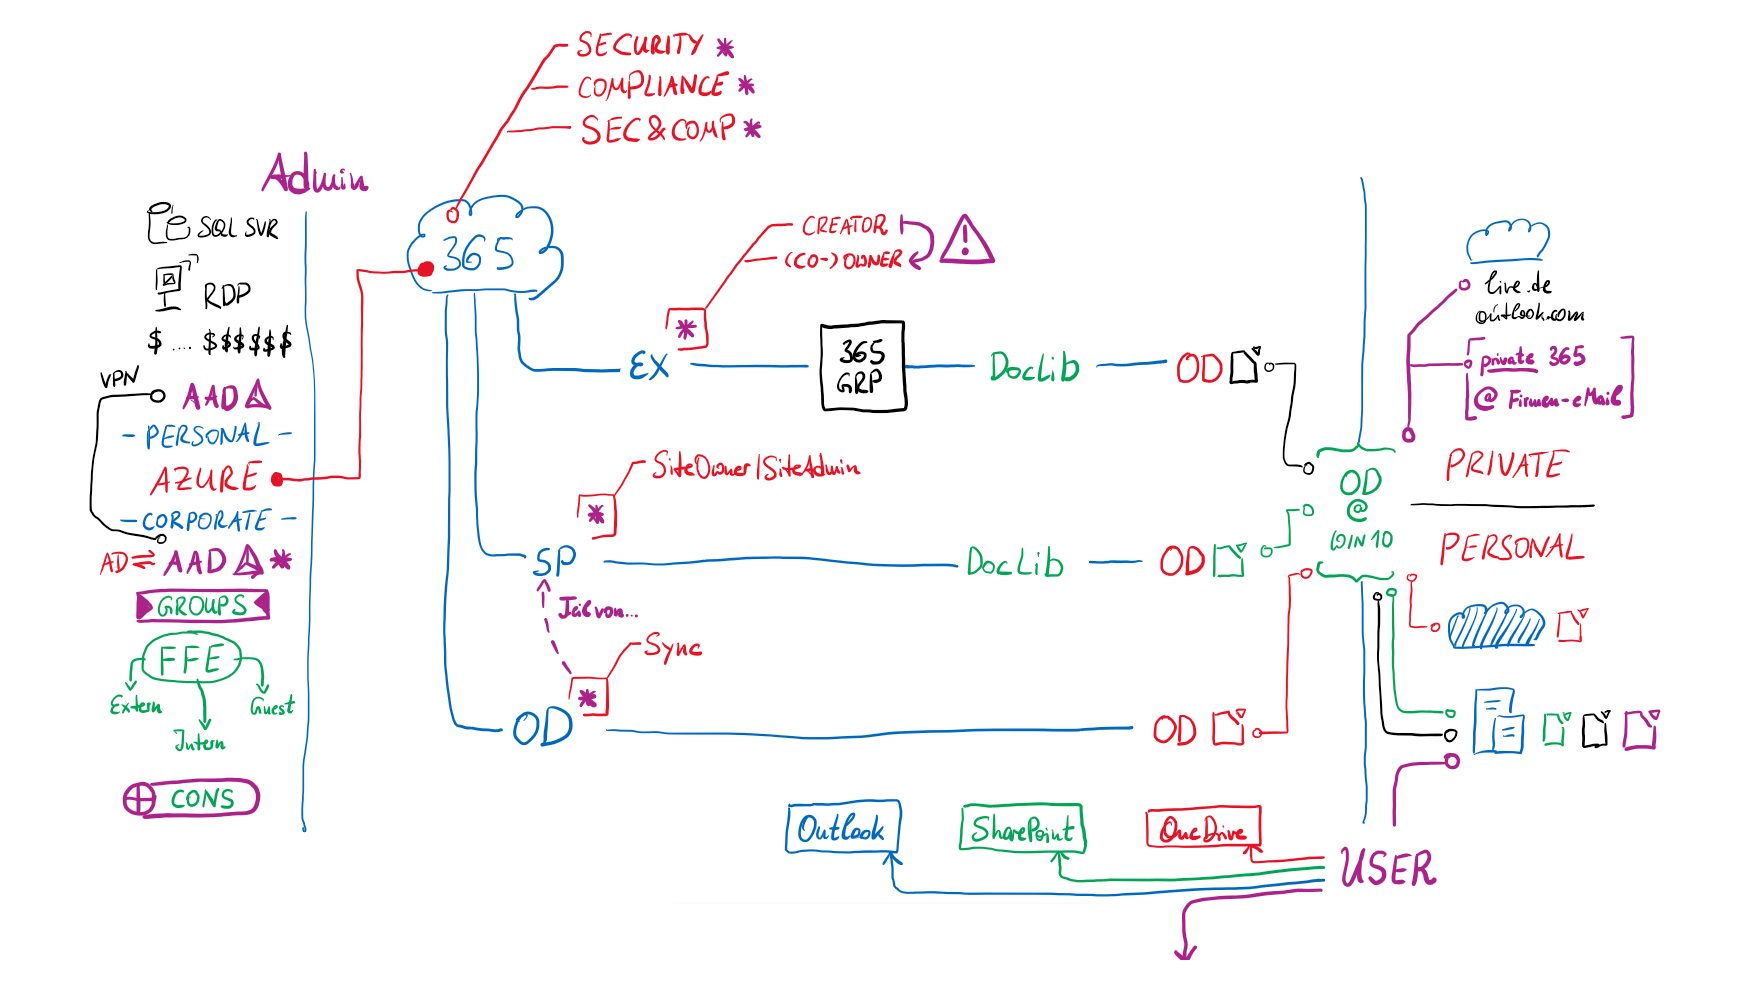 SECURITY *
COMPLIANCE *
SEC & COMP *
Admin
SQL SVR
RDP
$ .... $$$$$$
VPN
AAD
- PERSONAL -
AZURE
- CORPORATE -
AD ⇌ AAD *
GROUPS
FFE
Extern
Guest
Intern
CONS
365
CREATOR
(CO-) OWNER
!
*
EX
365
GRP
DocLib
OD
SiteOwner/SiteAdmin
*
SP
DocLib
OD
Teil von...
Sync
*
OD
OD
OD
@
WIN 10
live.de
outlook.com
private 365
@ Firmen-eMail
PRIVATE
PERSONAL
Outlook
SharePoint
OneDrive
USER